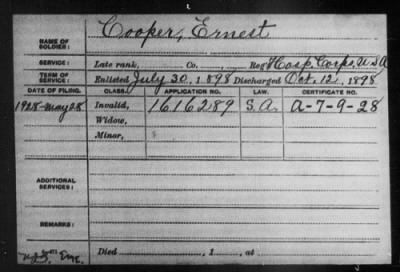 NAME OF SOLDIER: Cooper, Ernest
SERVICE: Late rank, Co. , Reg't Hosp. Corps, U.S.A.
TERM OF SERVICE: Enlisted July 30, 1898 Discharged Oct. 12, 1898
DATE OF FILING. CLASS. APPLICATION NO. LAW. CERTIFICATE NO.
1928-May 28 Invalid, 1616289 S.A. A-7-9-28
Widow,
Minor,
ADDITIONAL SERVICES:
REMARKS:
Died , 1 , at